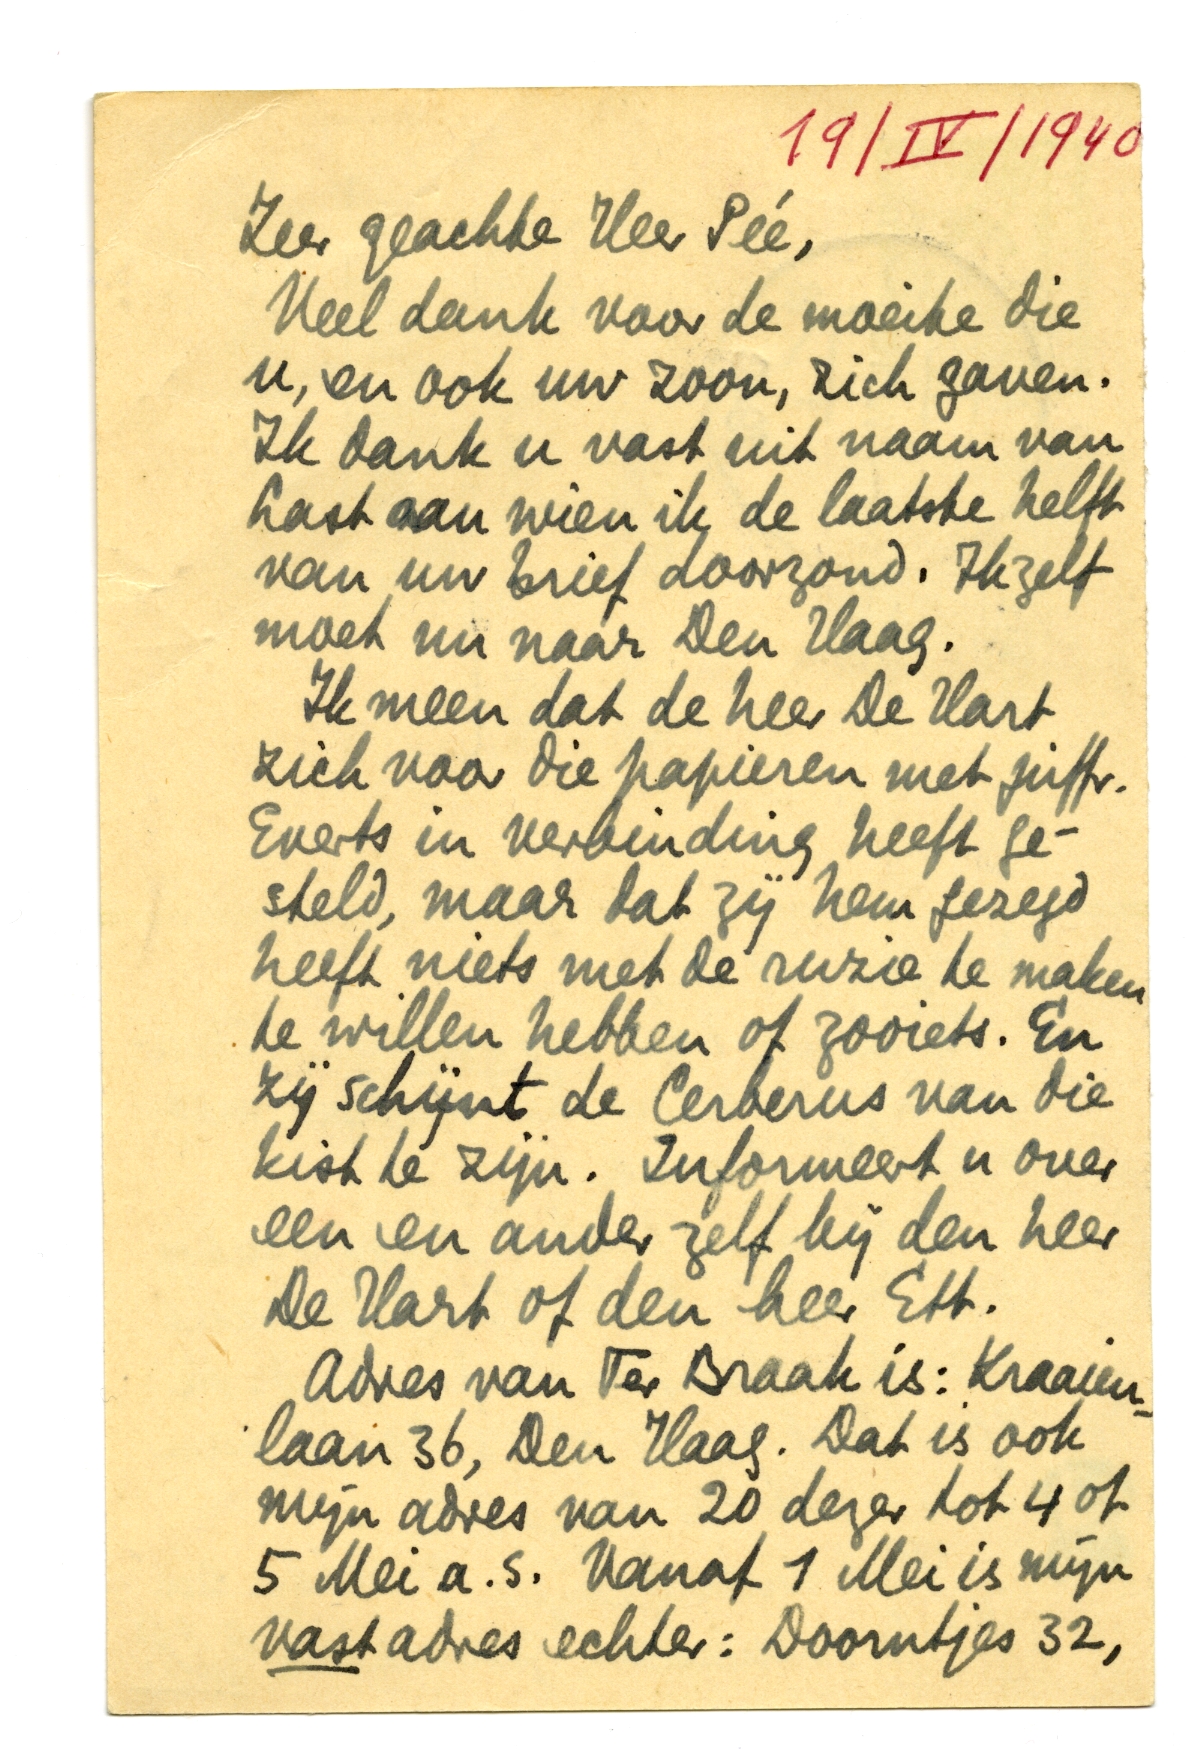 19/IV/1940
Zeer geachte Heer Péé,
Veel dank voor de moeite die
u, en ook uw zoon, zich gaven.
Ik dank u vast uit naam van
Last aan wien ik de laatste helft
van uw brief doorzond. Ikzelf
moet nu naar Den Haag.
Ik meen dat de heer De Hart
zich voor die papieren met juffr.
Everts in verbinding heeft ge-
steld, maar dat zij hem gezegd
heeft niets met de ruzie te maken
te willen hebben of zooiets. En
zij schijnt de Cerberus van die
kist te zijn. Informeert u over
een en ander zelf bij den heer
De Hart of den heer Ett.
Adres van Ter Braak is: Kraaien-
laan 36, Den Haag. Dat is ook
mijn adres van 20 dezer tot 4 of
5 Mei a.s. Vanaf 1 Mei is mijn
vast adres echter: Doorntjes 32,